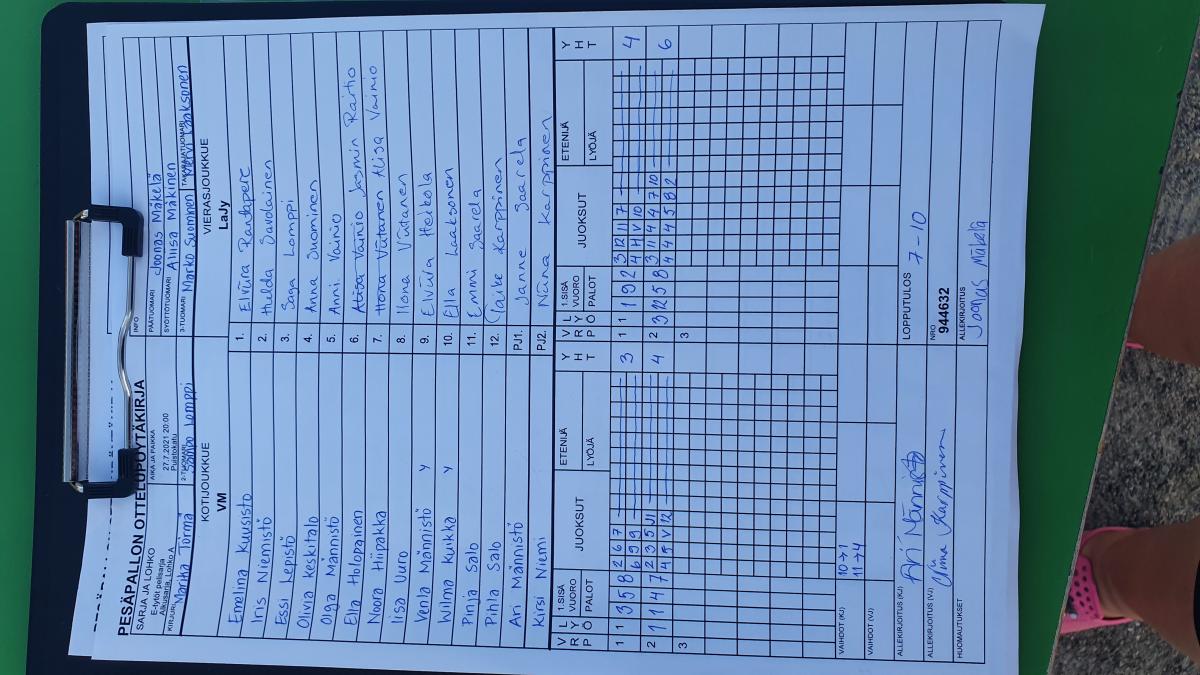 PESÄPALLON OTTELUPÖYTÄKIRJA
SARJA JA LOHKO
E-tytöt pelisarja
Alkusarja, Lohko A
AIKA JA PAIKKA
27.7.2021 20:00
Puistokatu
INFO
PÄÄTUOMARI Joonas Mäkelä
SYÖTTÖTUOMARI Aliisa Mäkinen
KIRJURI Martta Törmä
2-TUOMARI Lamppi
3-TUOMARI Marko Suominen
TAKARAJATUOMARI Mervi Laaksonen
KOTIJOUKKUE
VM
VIERASJOUKKUE
LaJy
Emelina Kuusisto 1. Elviira Rautapere
Iris Niemistö 2. Hulda Savolainen
Essi Lepistö 3. Saga Lamppi
Olivia Keskitalo 4. Anna Suominen
Olga Männistö 5. Anni Vainio
Ella Holopainen 6. Alisa Vainio Jasmin Raitio
Noora Hiipakka 7. Hona Viitanen Alisa Vainio
Iisa Vuro 8. Ilona Viitanen
Venla Männistö Y 9. Elviira Heikola
Wilma Kuikka Y 10. Ella Laaksonen
Pinja Salo 11. Emmi Saarela
Pihla Salo 12. Taike Karppinen
Ari Männistö PJ1. Janne Saarela
Kirsi Niemi PJ2. Niina Karppinen
V R L Y P Ö 1.SISÄ VUORO PALOT JUOKSUT ETENIJÄ LYÖJÄ Y H T V R L Y P Ö 1.SISÄ VUORO PALOT JUOKSUT ETENIJÄ LYÖJÄ Y H T
1 1 3 5 8 2 6 7 3 1 1 1 9 2 3 12 11 7 4
6 9 9 4 4 V 10
2 1 1 4 7 2 3 5 11 4 2 3 12 5 8 3 11 4 4 7 10 6
4 5 V 12 4 4 4 5 8 2
3 3
VAIHDOT (KJ) 10→1
11→4
VAIHDOT (VJ)
ALLEKIRJOITUS (KJ) Ari Männistö
LOPPUTULOS 7-10
ALLEKIRJOITUS (VJ) Niina Karppinen
NRO
944632
HUOMAUTUKSET
ALLEKIRJOITUS
Joonas Mäkelä